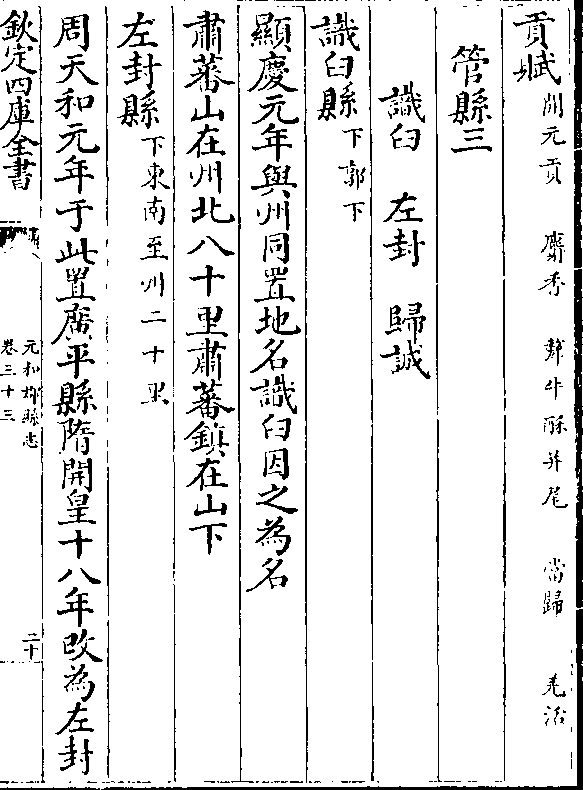 貢賦開元貢 麝香 犛牛酥并尾 當歸 羌活
管縣三
識臼 左封 歸誠
識臼縣下郭下
顯慶元年與州同置地名識臼因之為名
肅蕃山在州北八十里肅蕃鎮在山下
左封縣下東南至州二十里
周天和元年于此置廣平縣隋開皇十八年改為左封
欽定四庫全書
元和郡縣志
卷三十三
二十